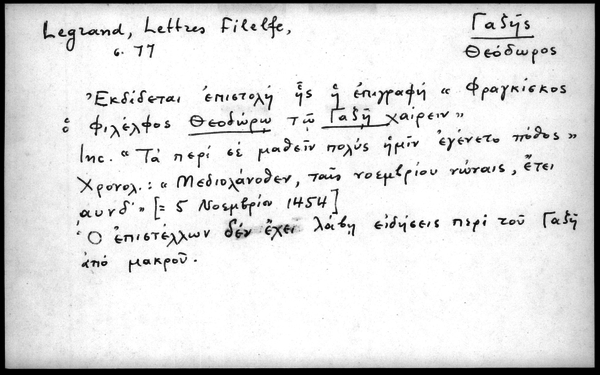 Legrand, Lettres Filelfe,
Γαζῆς
σ. 77
Θεόδωρος
Ἐκδίδεται ἐπιστολή ἧς ἡ ἐπιγραφή « Φραγκίσκος
ὁ Φιλέλφος Θεοδώρῳ τῷ Γαζῇ χαίρειν»
Inc. «Τά περί σέ μαθεῖν πολύς ἡμῖν ἐγένετο πόθος»
Χρονολ.: «Μεδιολάνοθεν, ταῖς νοεμβρίου νώναις, ἔτει
αυνδ΄» [= 5 Νοεμβρίου 1454]
Ὁ ἐπιστέλλων δέν ἔχει λάβῃ εἰδήσεις περί τοῦ Γαζῆ
ἀπό μακροῦ.